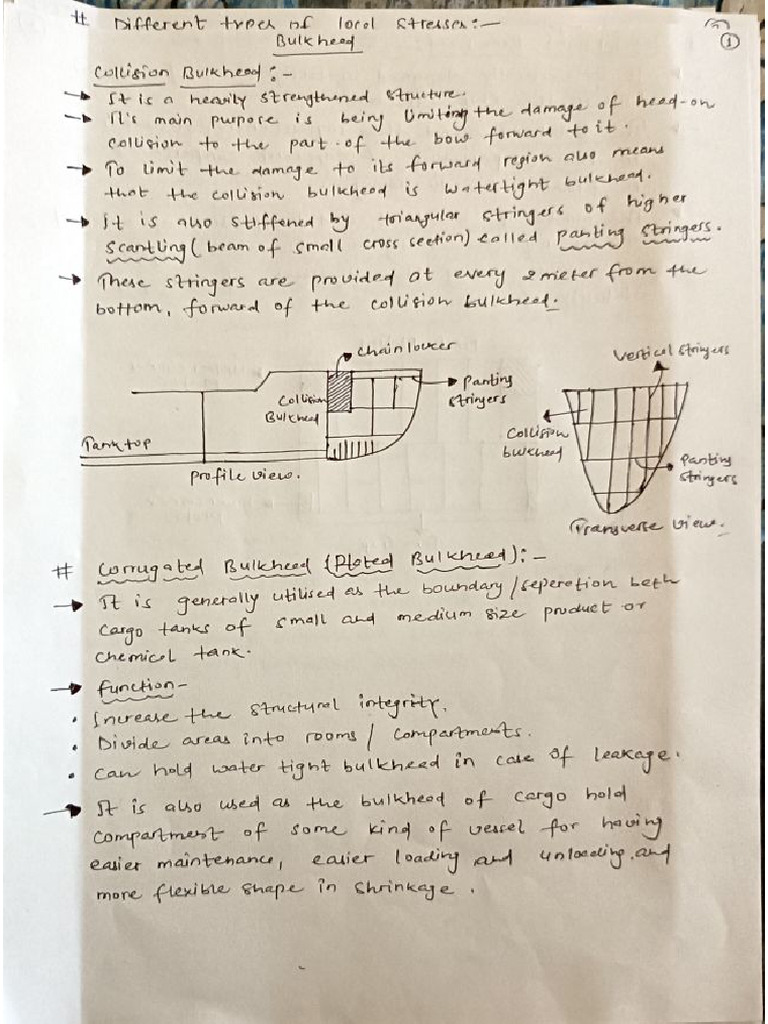 # Different types of local stresses:-
Bulkhead
1
Collision Bulkhead:-
→ It is a heavily strengthened structure.
→ It's main purpose is being limiting the damage of head-on
collision to the part of the bow forward to it.
→ To limit the damage to its forward region also means
that the collision bulkhead is watertight bulkhead.
→ it is also stiffened by triangular stringers of higher
scantling (beam of small cross section) called panting stringers.
→ These stringers are provided at every 2 meter from the
bottom, forward of the collision bulkhead.
chain loucer
Collision
Bulkhead
Panting
stringers
Tank top
Profile view.
Vertical stringers
Collision
bulkhead
Panting
stringers
Transverse view.
# Corrugated Bulkhead (Ploted Bulkhead):-
→ It is generally utilised as the boundary/seperation beth
cargo tanks of small and medium size product or
chemical tank.
→ function-
• Increase the structural integrity.
• Divide areas into rooms / compartments.
• can hold water tight bulkhead in case of leakage.
→ It is also used as the bulkhead of cargo hold
compartment of some kind of vessel for having
easier maintenance, easier loading and unloading, and
more flexible shape in shrinkage.